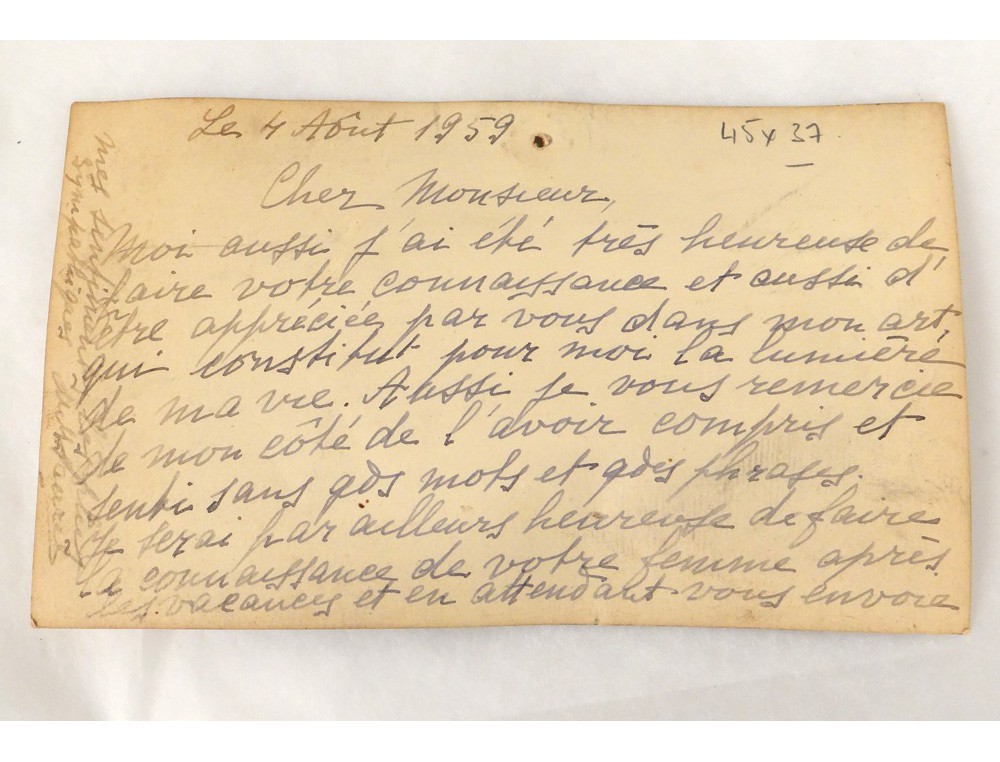 Le 4 Août 1959
45 x 37
Cher Monsieur,
Moi aussi j'ai été très heureuse de
faire votre connaissance et aussi d'
être appréciée par vous dans mon art,
qui constitut pour moi la lumière
de ma vie. Aussi je vous remercie
de mon côté de l'avoir compris et
senti sans gds mots et gdes phrases.
Je serai par ailleurs heureuse de faire
la connaissance de votre femme après
les vacances et en attendant vous envoie
mes sentiments les plus
sympathiques